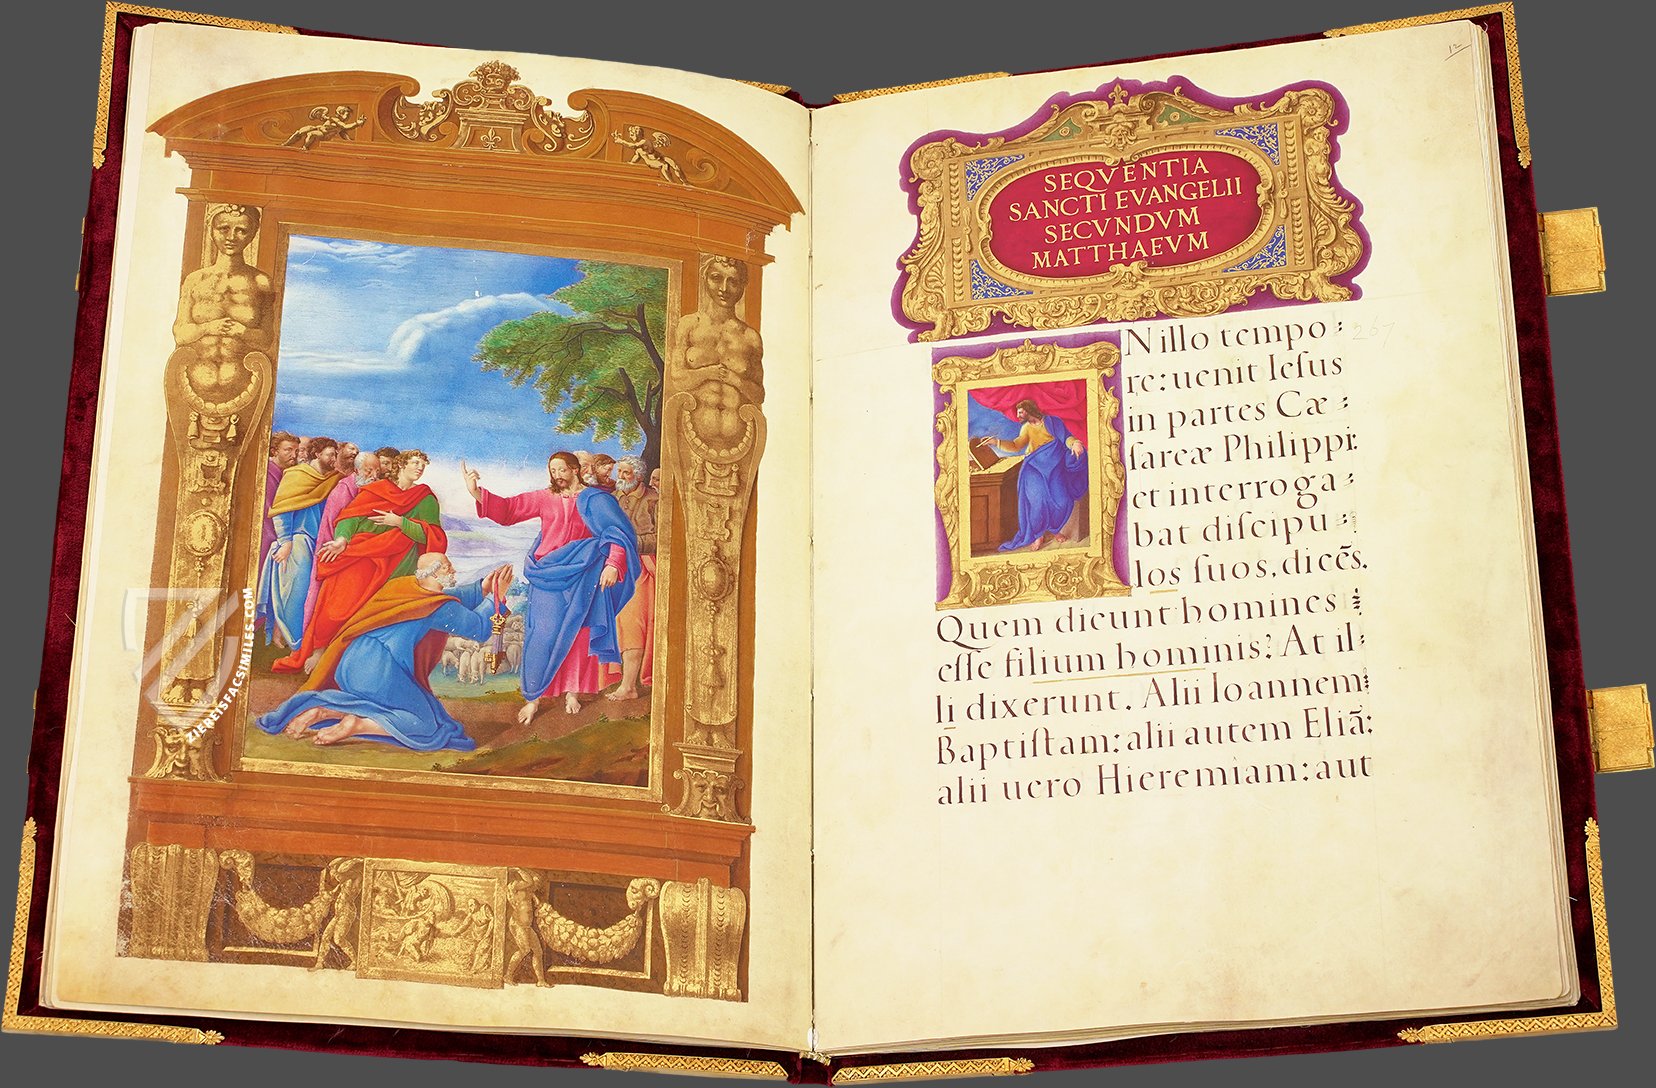 ZIEREISFACSIMILES.COM
12
SEQVENTIA
SANCTI EVANGELII
SECVNDVM
MATTHAEVM
267
N illo tempo⸗
re: uenit Iesus
in partes Cæ⸗
ſareæ Philippi:
et interroga⸗
bat diſcipu⸗
los ſuos, dicēs.
Quem dicunt homines
eſſe filium hominis? At il⸗
li dixerunt. Alii Ioannem
Baptiſtam: alii autem Eliā:
alii uero Hieremiam: aut